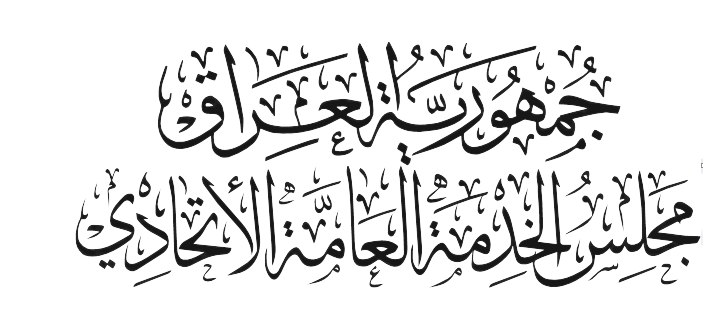 جُمهُوريَّة العِراق
مجلسُ الخدمة العامَّة الأتحادي